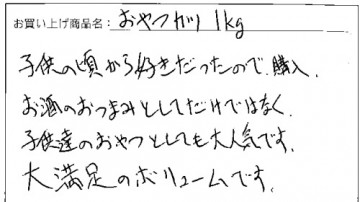 お買い上げ商品名: おやつカツ 1kg
子供の頃から好きだったので、購入、
お酒のおつまみとしてだけではなく、
子供達のおやつとしても大人気です。
大満足のボリュームです。